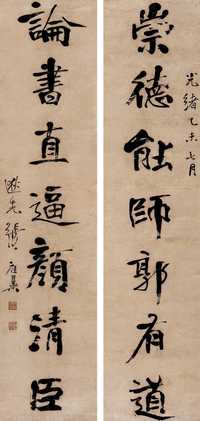 光緒乙未七月
崇德能師郭有道
論書直逼顏清臣